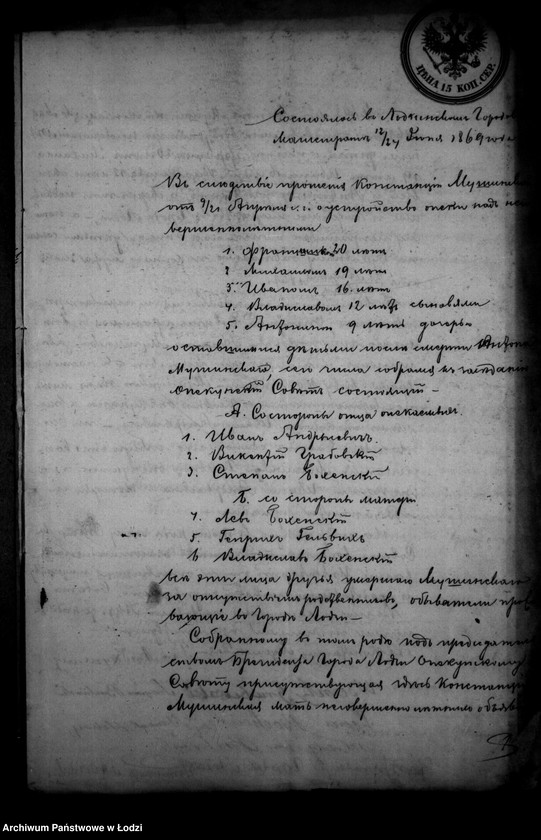 ЦѢНА 15 КОП. СЕР.
Состоялось въ Лодзинскомъ Городс
Магистратѣ 12/24 Іюня 1869 года
Въ слѣдствіе прошенія Констанціи Мушинс
отъ 9/21 Апрѣля с. г. о устройство опеки надъ не
вершеннолѣтними
1. Францишк 20 лѣтн
2 Михаиломъ 19 лѣтн
3. Иваномъ 16 лѣтн
4. Владиславомъ 12 лѣтъ сыновьями
5. Антониною 9 лѣтн дочерью
оставшимися дѣтьми послѣ смерти Антона
Мушинскаго, сего числа собрался въ засѣданіе
Опекунскій Совѣтъ состоящій —
А. Со стороны отца
1. Иванъ Андрыевичъ.
2. Викентій Грабовскій
3. Степанъ Бохенскій
Б. со стороны матери
4. Левъ Бохенскій
5. Генрихъ Гельвихъ
6 Владиславъ Бохенскій
всѣ эти лица друзья умершаго Мушинскаго
за отсутствіемъ родственниковъ, обыватели прожи
вающіе въ городѣ Лодзи —
Собранному въ томъ родѣ подъ предсѣдатель
ствомъ Президента Города Лодзи Опекунскому
Совѣту присутствующая здѣсь Констанція
Мушинская мать несовершеннолѣтнихъ объяв
Archiwum Państwowe w Łodzi